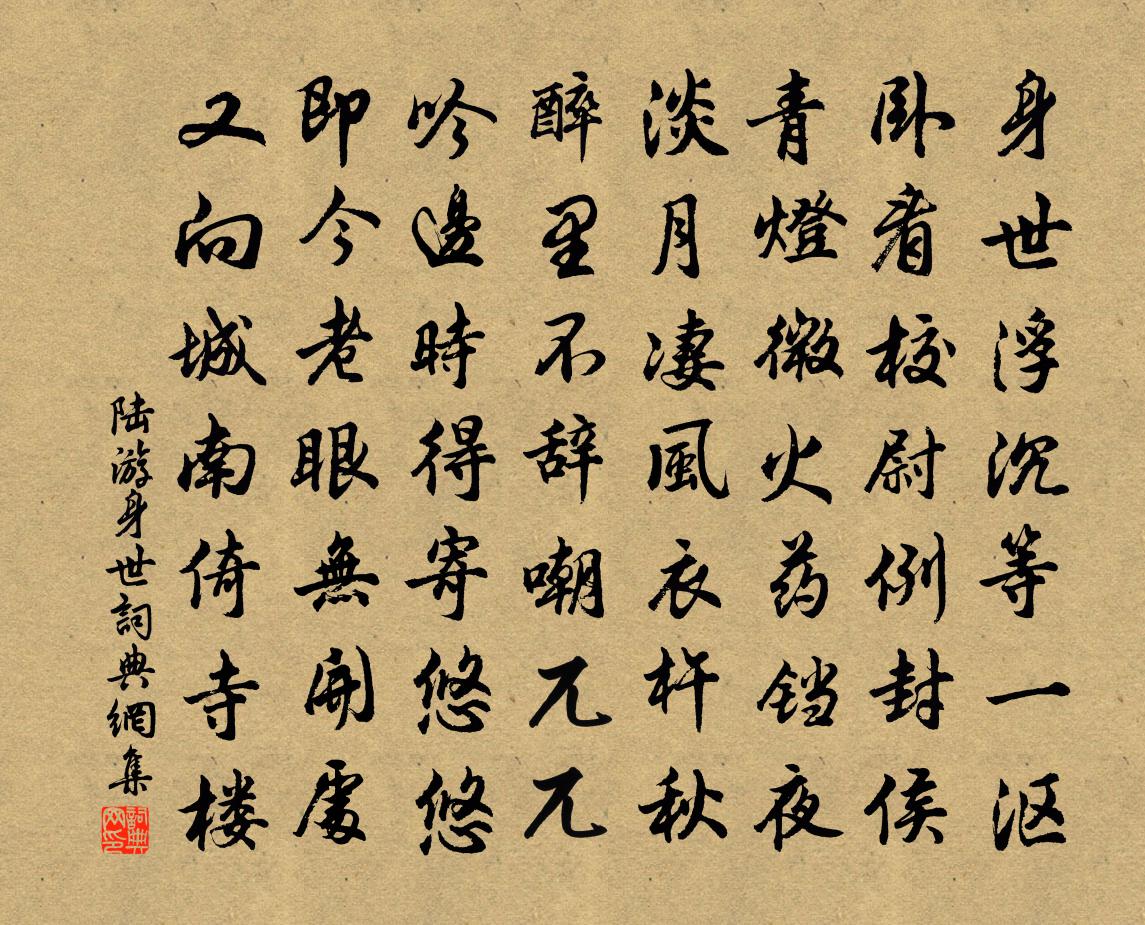 身世浮沉等一沤
卧看校尉例封侯
青燈微火药铛夜
淡月凄風衣杵秋
醉里不辞嘲兀兀
吟邊時得寄悠悠
即今老眼無開處
又向城南倚寺楼
陆游身世詞典網集
詞典网印